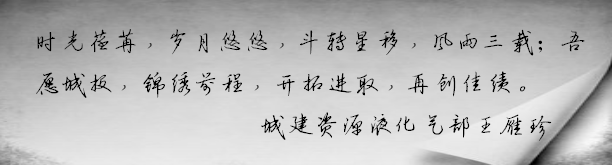 时光荏苒，岁月悠悠，斗转星移，风雨三载；吾
愿城投，锦绣前程，开拓进取，再创佳绩。
城建资源液化气部王雁珍